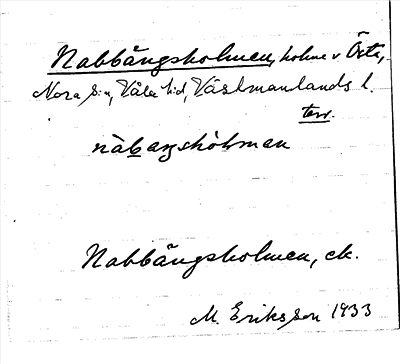 Nabbängsholmen, holme v Östa,
Nora sn, Våla hd, Västmanlands l.
terr.
nàbaŋshòlman
Nabbängsholmen, ek.
M. Eriksson 1933